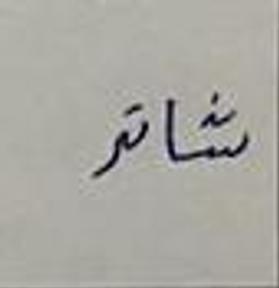 شاتر